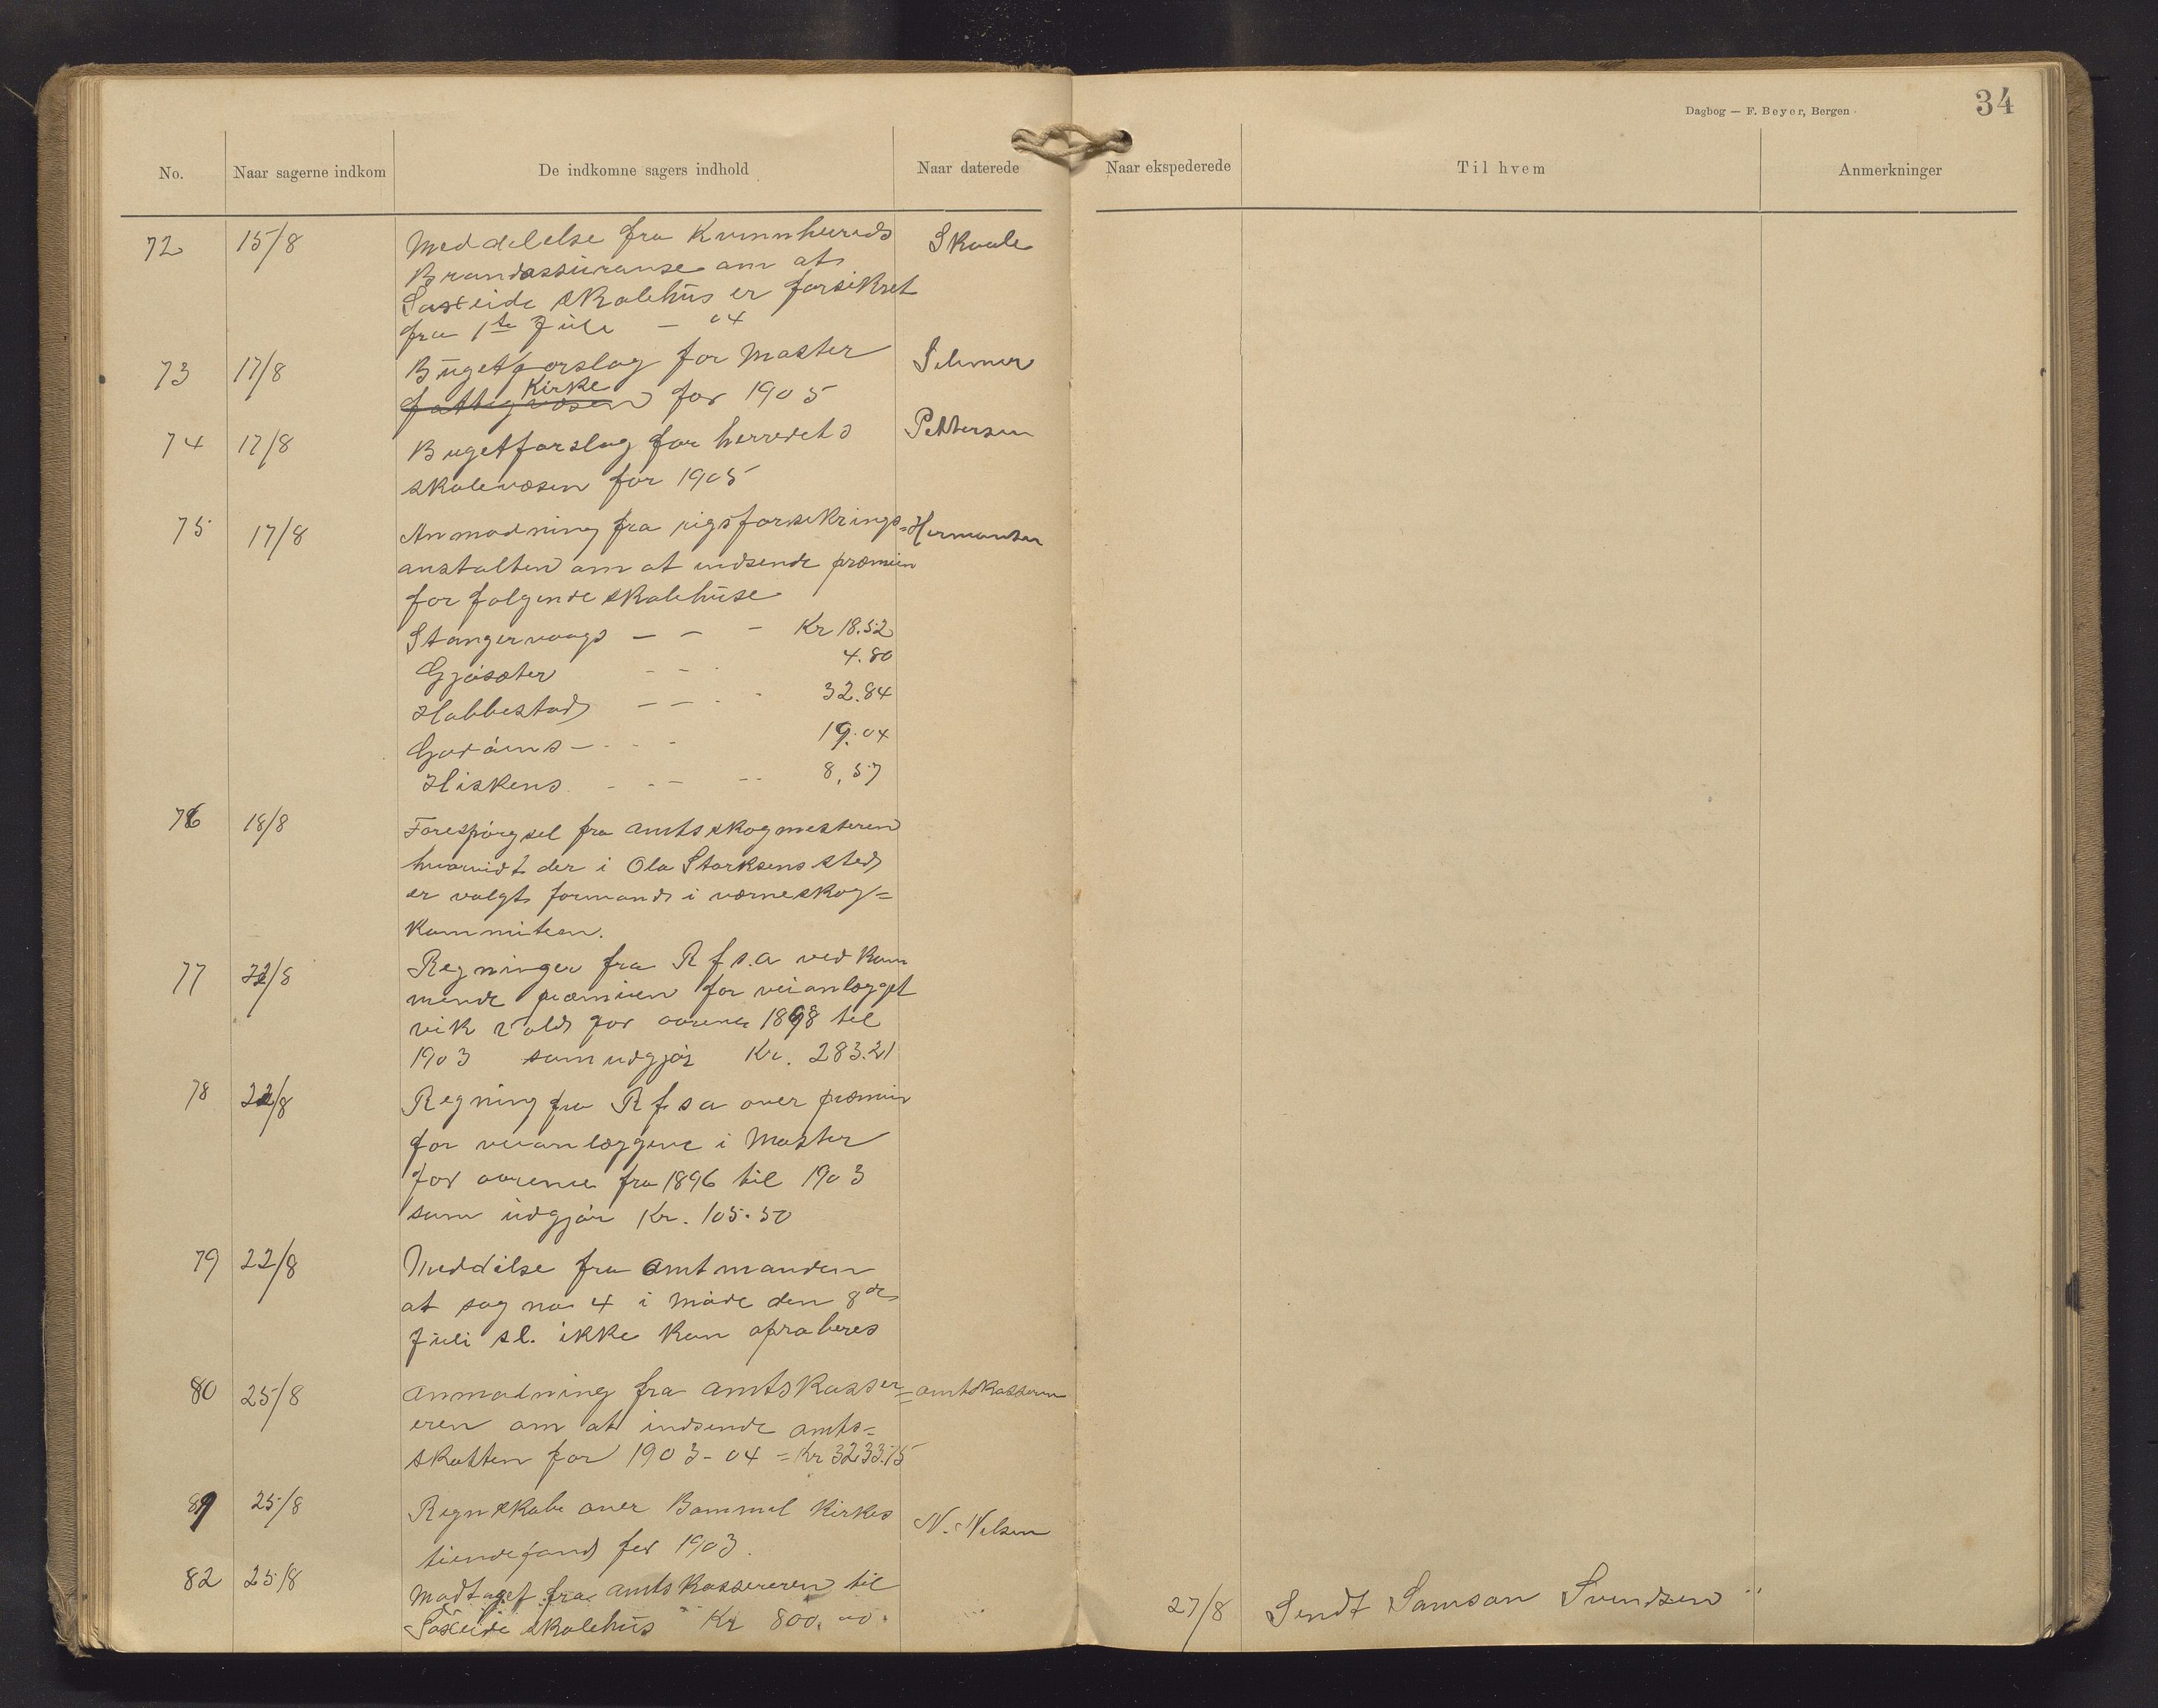 Dagbog — F. Beyer, Bergen
34
No. Naar sagerne indkom De indkomne sagers indhold Naar daterede Naar ekspederede Til hvem Anmerkninger
72 15/8 Meddelelse fra Kvinnherads Skaale
Brandassuranse om at
Saxeide skolehus er forsikret
fra 1te Juli – 04
73 17/8 Bugetforslag for Moster
Kirke
fattigvæsen for 1905
74 17/8 Bugetforslag for herredets Pettersen
skolevæsen for 1905
75 17/8 Anmodning fra rigsforsikrings= Hermansen
anstalten om at indsende præmien
for følgende skolehuse
Stangervaags – – – Kr 18.52
Gjösæter – – 4.80
Habbestad – – - 32.84
19.04
Hiskens - - – -- 8,57
76 18/8 Forespörgsel fra amtsskogmesteren
hvorvidt der i Ola Storksens sted
er valgt formand i værneskog=
kommiteen.
77 22/8 Regninger fra R f s.a vedkom
mende præmien for veianlægget
vik Vold for aarene 1898 til
1903 som udgjör Kr. 283.21
78 22/8 Regning fra R f s a over præmie
for veianlæggene i Moster
for aarene fra 1896 til 1903
som udgjör Kr. 105.50
79 22/8 Meddelse fra Amtmanden
at sag no 4 i möde den 8de
Juli sl. ikke kan aproberes
80 25/8 Anmodning fra Amtskasser= amtskasseren
eren om at indsende amts=
skatten for 1903-04 = Kr 3233.75
81 25/8 Regnskab over Bømmel Kirkes N. Nilsen
tiendefond for 1903.
82 25/8 Modtaget fra Amtskassereren til
Saxeide skolehus Kr 800.00. 27/8 Sendt Samson Svendsen